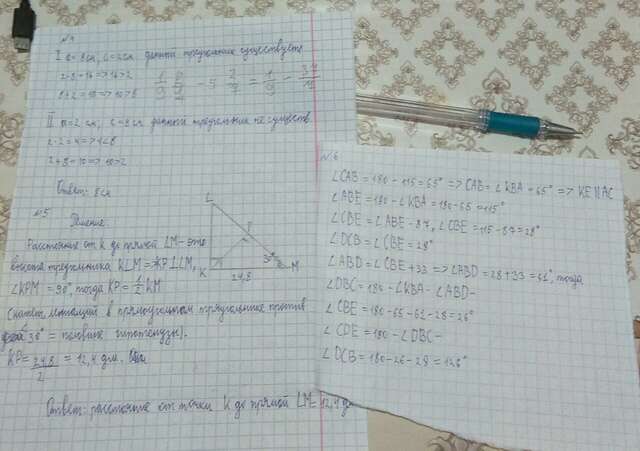 №4
I a = 8 см, c = 2 см данный треугольник существует
2·8 = 16 => 16 > 2
8 + 2 = 10 => 10 > 8
II a = 2 см, c = 8 см данный треугольник не существ.
2·2 = 4 => 4 < 8
2 + 8 = 10 => 10 > 2
Ответ: 8 см
№5
Решение.
Расстояние от K до прямой LM - это
высота треугольника KLM = KP ⊥ LM,
∠KPM = 90°, тогда KP = 1/2 KM
(катет, лежащий в прямоугольном треугольнике против
30° = половине гипотенузы).
KP = 24,8/2 = 12,4 дм.
Ответ: расстояние от точки K до прямой LM = 12,4 д
L
P
30°
K
24,8
M
№6
∠CAB = 180 - 115 = 65° => CAB = ∠KBA - 65° => KE || AC
∠ABE = 180 - ∠KBA = 180 - 65 = 115°
∠CBE = ∠ABE - 87, ∠CBE = 115 - 87 = 28°
∠DCB = ∠CBE = 28°
∠ABD = ∠CBE + 33 => ∠ABD = 28 + 33 = 61°, тогда
∠DBC = 180 - ∠KBA - ∠ABD -
∠CBE = 180 - 65 - 61 - 28 = 26°
∠CDE = 180 - ∠DBC -
∠DCB = 180 - 26 - 28 = 126°